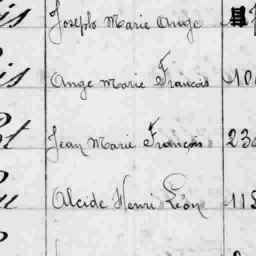 is Joseph Marie Ange
is Ange Marie François 10
t Jean Marie François 23
u Alcide Henri Léon 115